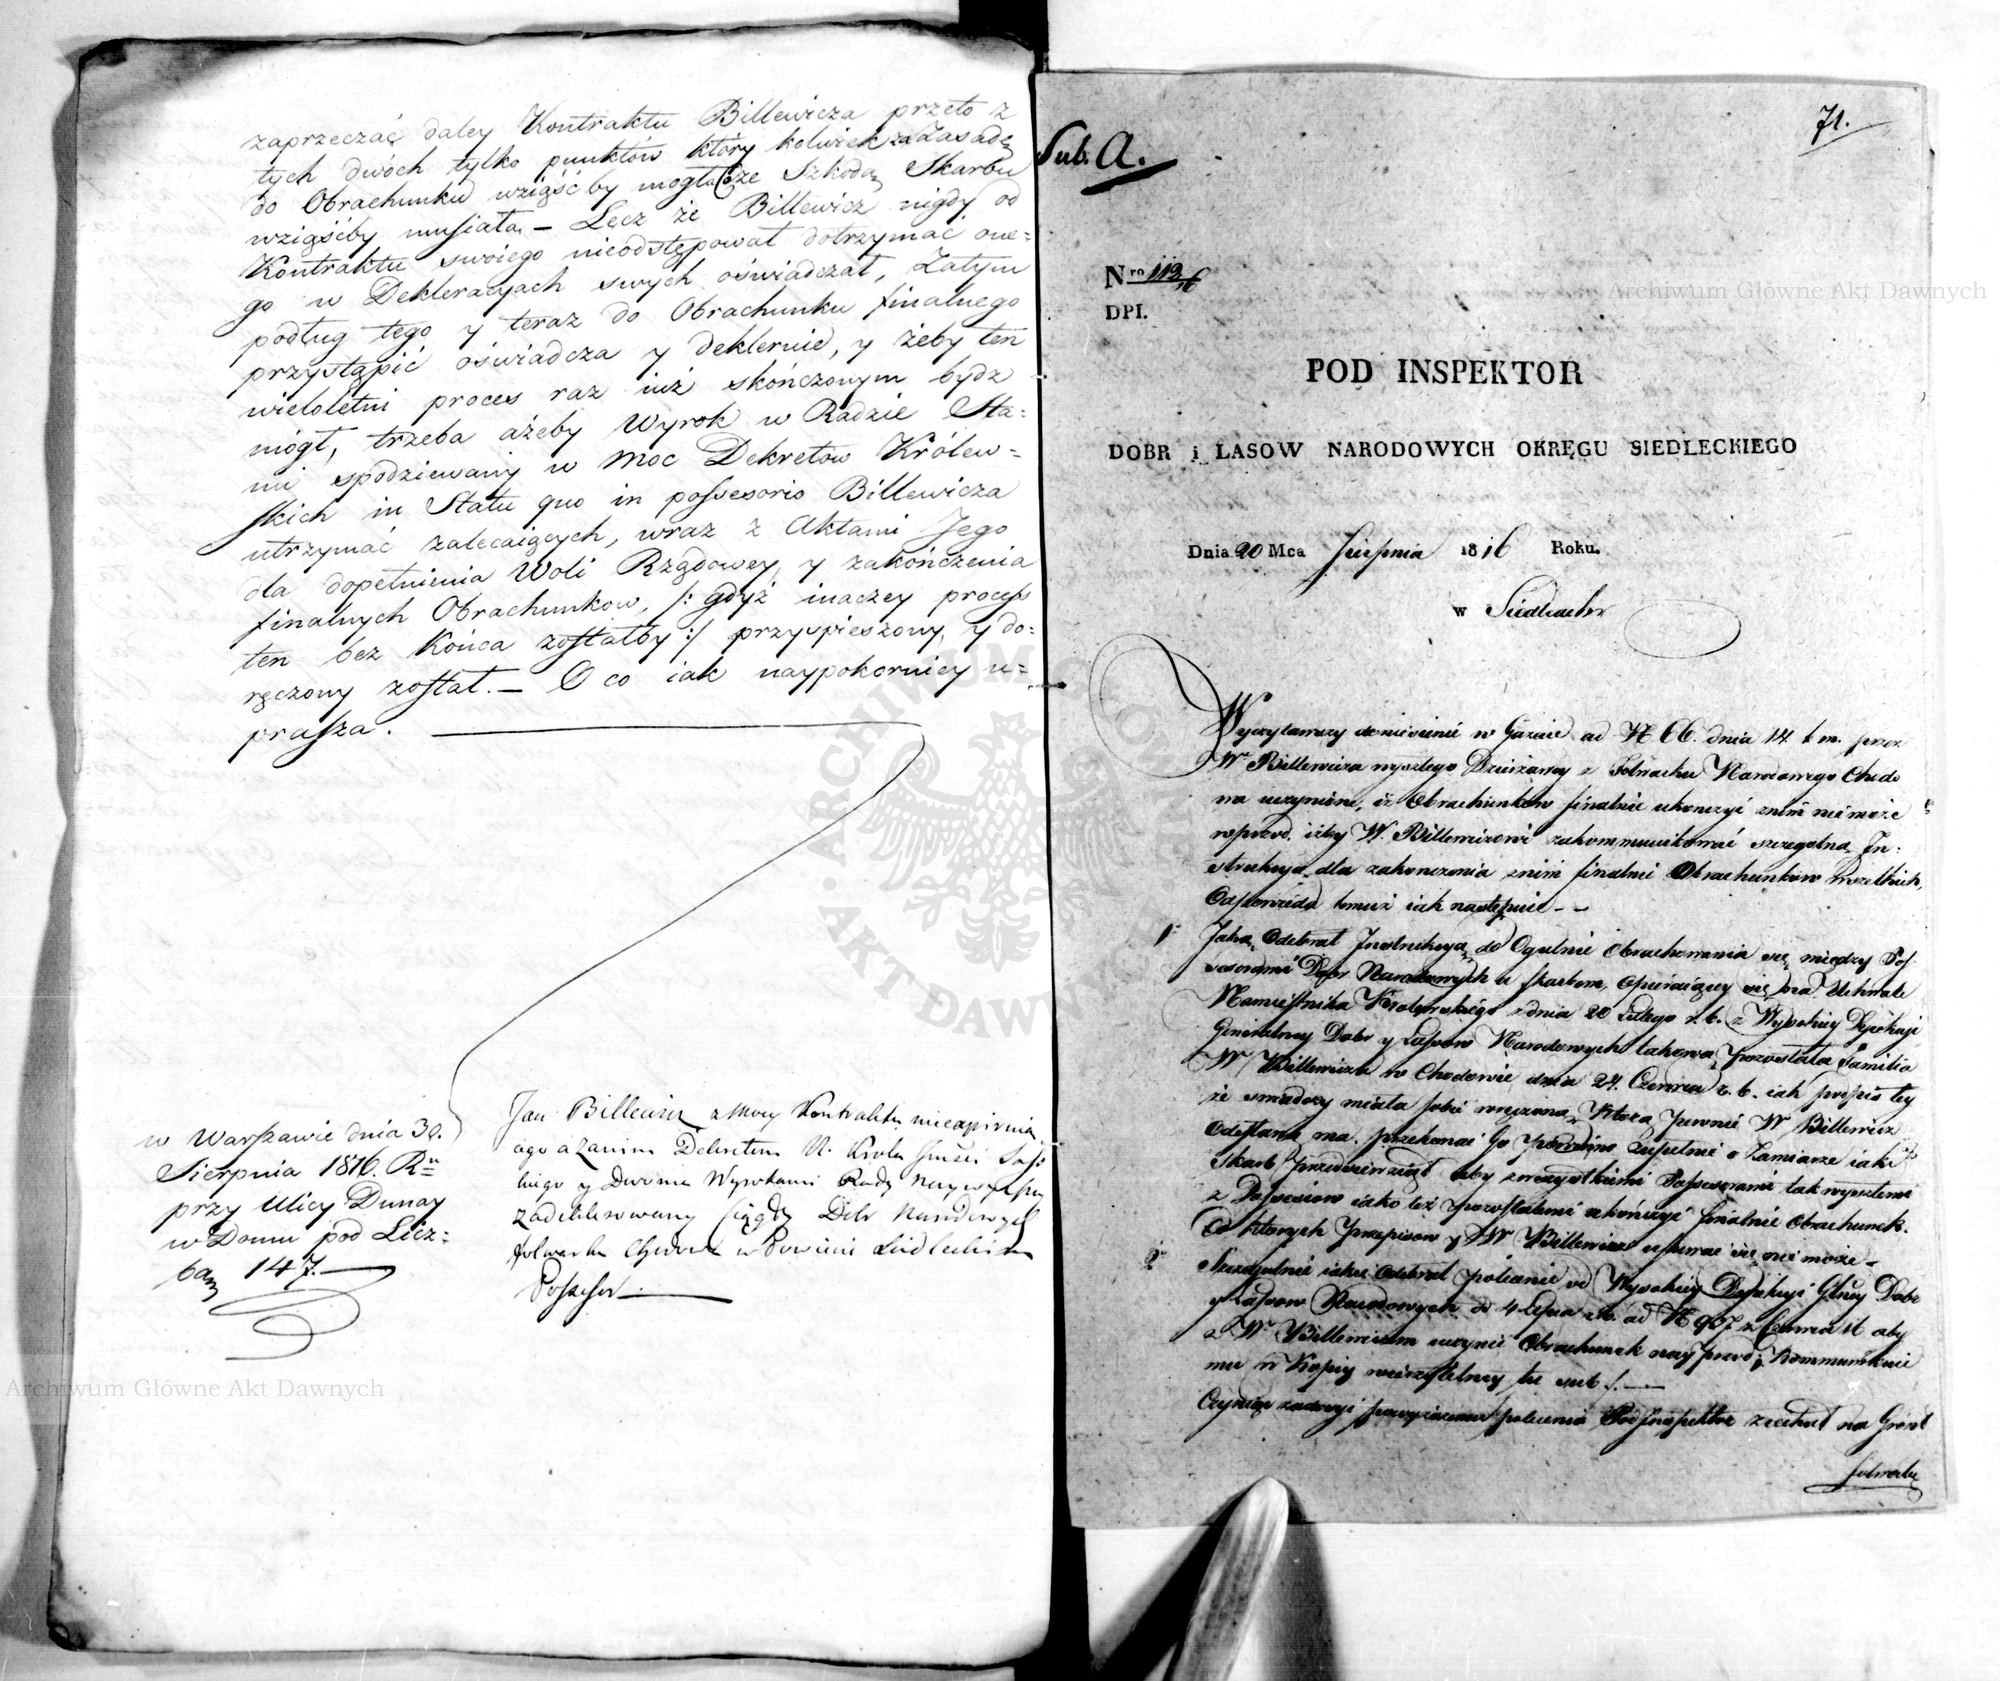 zaprzeczać daley Kontraktu Billewicza przeto z
tych dwóch tylko punktow który kolwiek za Zasadę
do Obrachunku wziąść by mogła ze Szkodą Skarbu
wziąśćby musiała – Lecz że Billewicz nigdy od
Kontraktu swoiego nieodstępował dotrzymać one=
go w Dekleracyach swych oświadczał, Zatym
podług tego y teraz do Obrachunku finalnego
przystąpić oświadcza y deklernie, y żeby ten
wieloletni proces raz iuż skończonym bydz
mógł, trzeba ażeby Wyrok w Radzie Sta=
nu spodziewany w moc Dekretow Królew=
skich in Statu quo in possesorio Billewicza
utrzymać zalecaiących, wraz z Aktami Jego
dla dopełnienia Woli Rządowey y zakończenia
finalnych Obrachunkow, /: gdyż inaczey process
ten bez Końca zostałby :/ przyspieszony y do=
ręczony został. – O co iak naypokorniey u=
prasza.
w Warszawie dnia 30.
Sierpnia 1816. Rn
przy Ulicy Dunay
w Domu pod Licz=
bą 147.
Jan Billewicz z Mocy Kontraktu nieexpirnia
Dekretem N. Króla
y Dwóma Wyrokami Rady Naywyższey
Dóbr Narodowych
folwarku w Powiecie Siedleckim
Possesor
71.
Sub. A.
Nro 112/16
DPI.
POD INSPEKTOR
DOBR i LASOW NARODOWYCH OKRĘGU SIEDLECKIEGO
Dnia 20 Mca Sierpnia 1816 Roku.
w Siedlcach
Wyczytawszy doniesienie w Gazecie ad N 66. dnia 14. t. m. przez
W Billewicza wyszłego Dzierżawcy z Folwarku Narodowego Chodo
wa uczynione, iż Obrachunkow finalnie ukonczyć znim niemoże
wprzod, iżby W. Billewiczowi zakommunikować szczegolną In=
strukcyą dla zakonczenia znim finalnie Obrachunkow wszelkich,
Odpowiada temuż iak następuie –
1o Jaką Odebrał Instrukcyą do Ogulnie Obrachowania się między Pos=
sesorami Dobr Narodowych a Skarbem, opieraiący się na Uchwale
Namiestnika Krolewskiego z dnia 20 Lutego r. b. z Wysokiey Dyrekcyi
Generalney Dobr y Lasow Narodowych takowa pozostała Familia
W Billewicza w Chodowie dnia 24. Czerwca r. b. iak podpis tey
że swiadczy miała sobie wręczoną, Ktora pewnie W Billewicz
odesłana ma. przekonać Go powinno zupełnie o Zamiarze iaki
Skarb przedsiewziął aby zwszystkiemi Possesorami tak wyszłemi
z Possesiow iako też pozostałemi ukończyć finalnie Obrachunek.
Od ktorych Przepisow y W Billewicz usuwać się nie może –
2o Szczegulnie iakie Odebrał polecenie od Wysokiey Dyrekcyi Głney Dobr
y Lasow Narodowych d 4 Lipca r. b. ad N 937 z Czerwca 16 aby
z W Billewiczem uczynić Obrachunek nayprzod, Kommunikuie
mu w Kopiy wierzytelney tu sub /.
Czyniąc zadosyć powyższemu poleceniu Podinspektor ziechał na Grónt
folwarku
Archiwum Główne Akt Dawnych
Archiwum Główne Akt Dawnych
ARCHIWUM GŁÓWNE AKT DAWNYCH